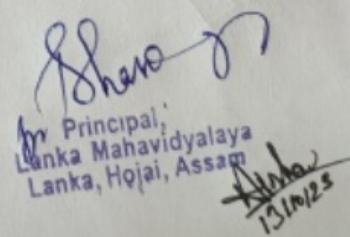 Principal,
Lanka Mahavidyalaya
Lanka, Hojai, Assam
13/10/23